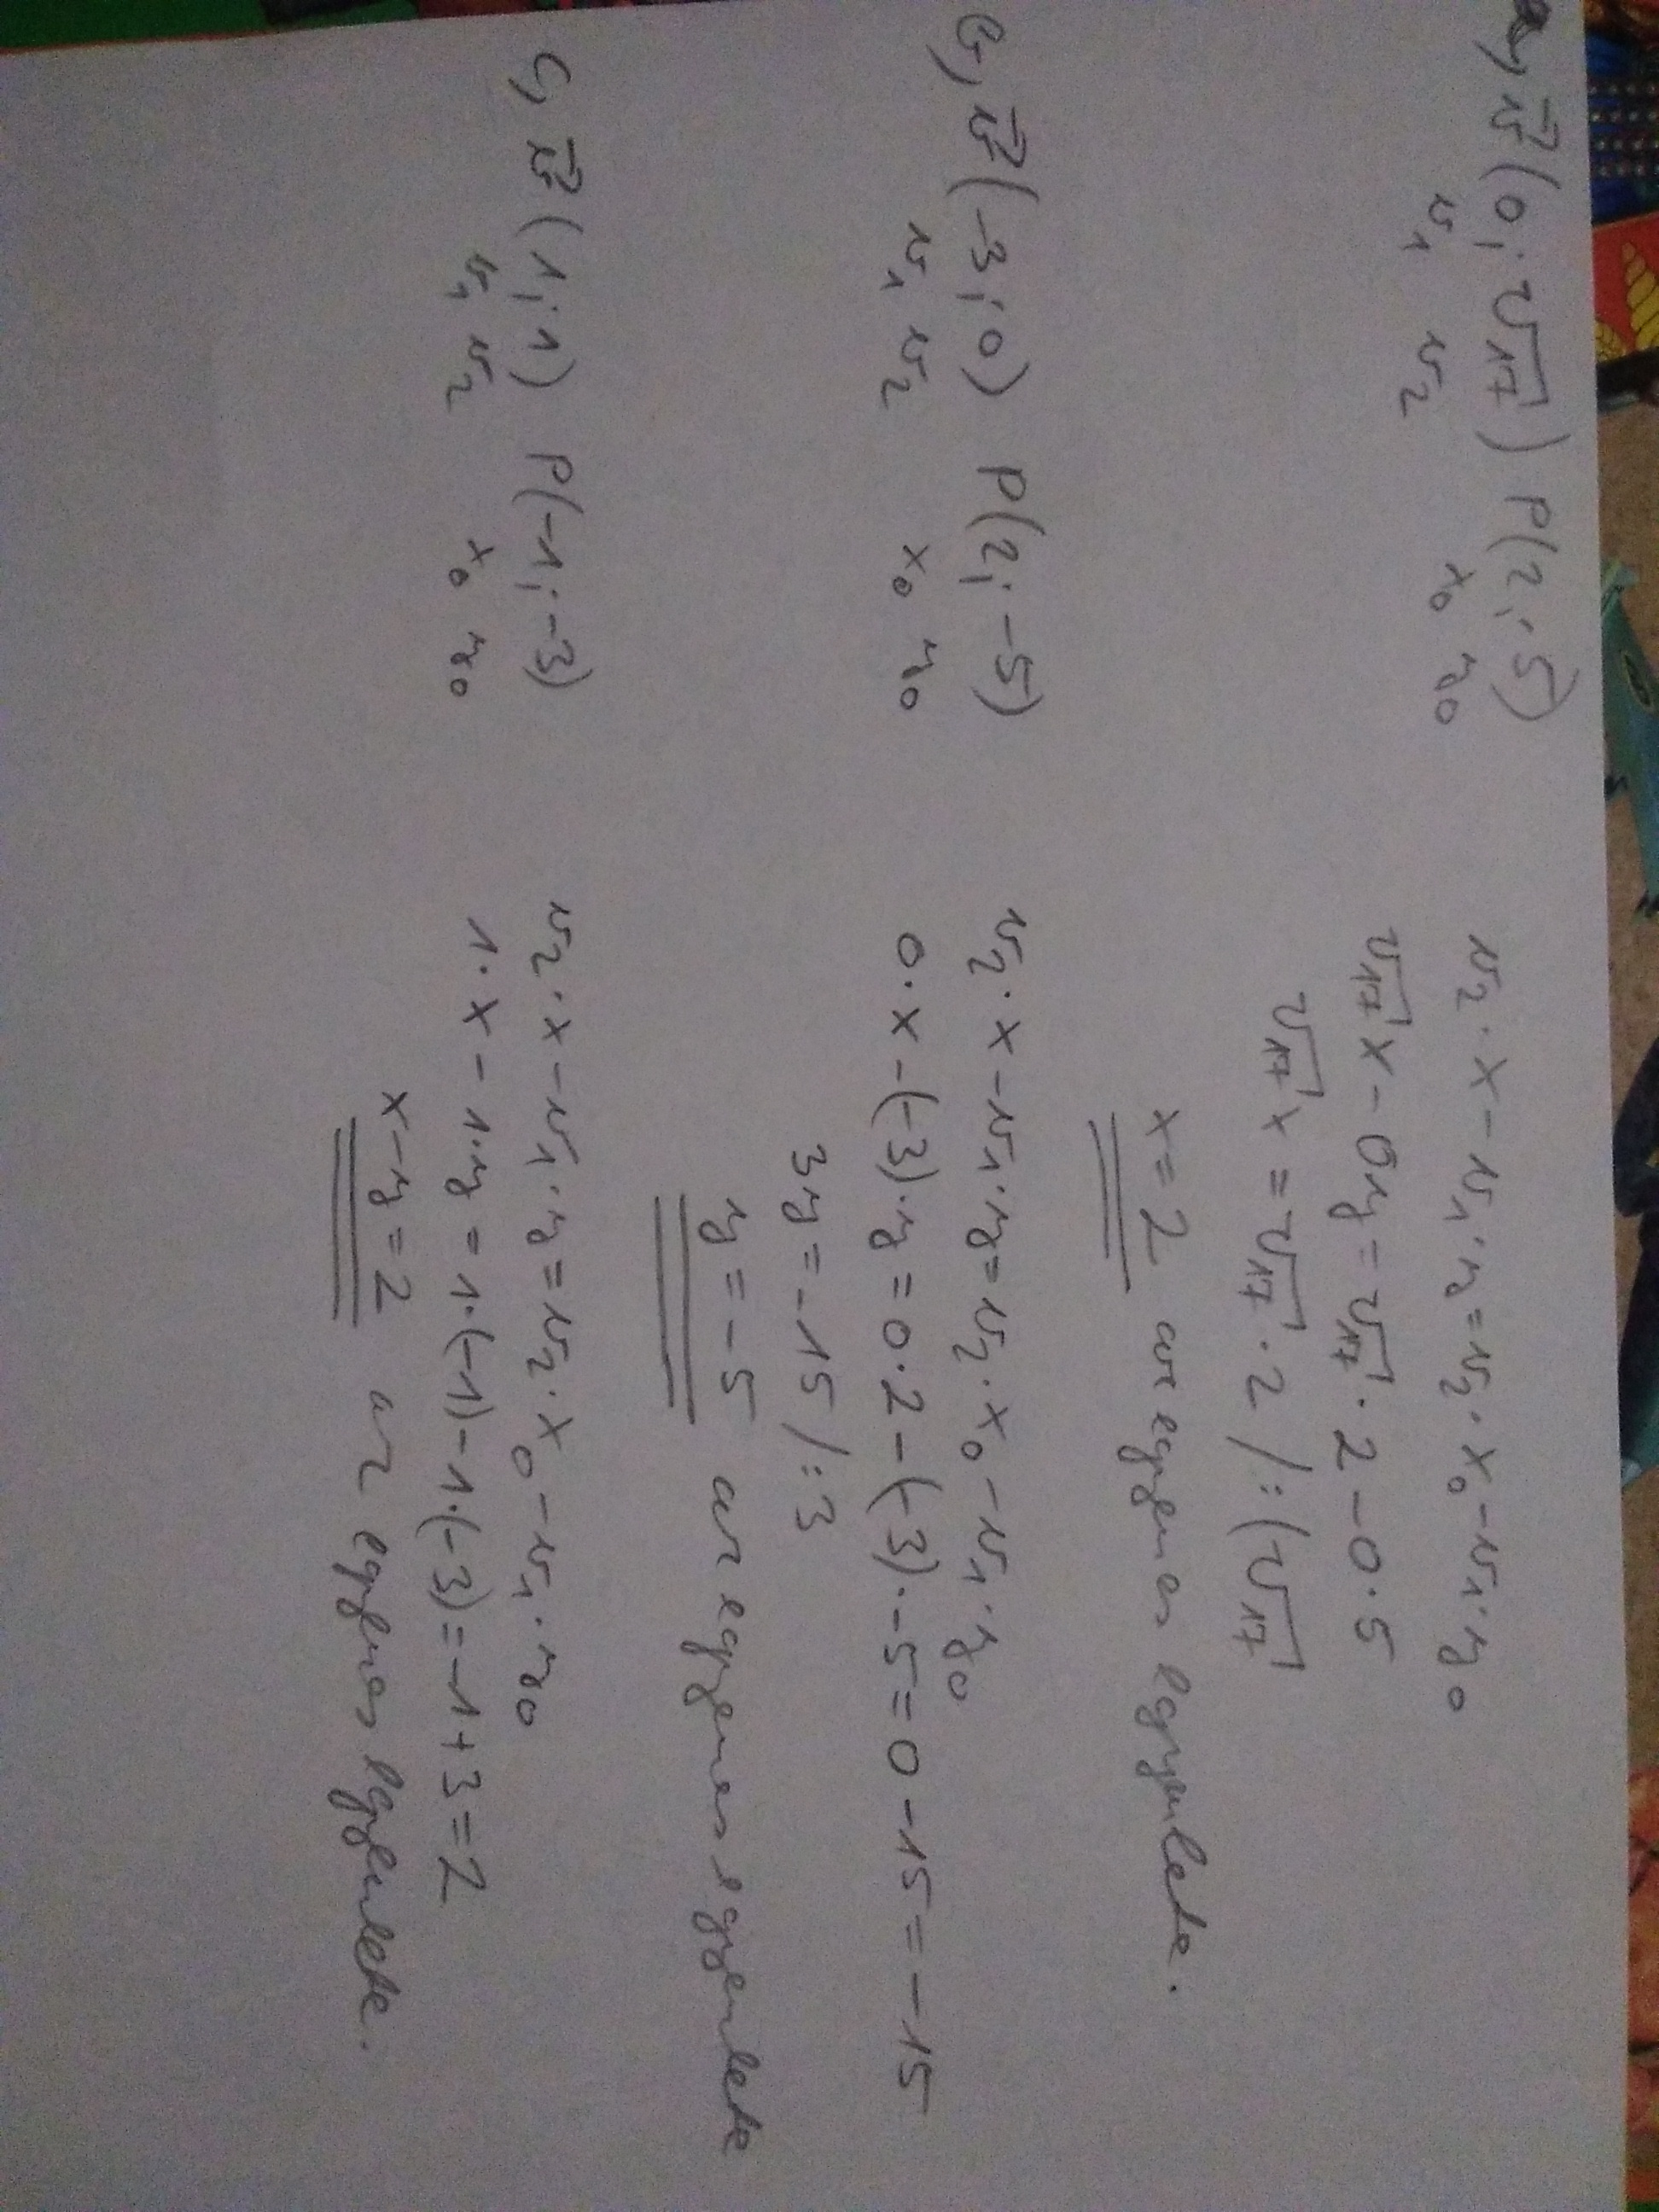 a, v⃗(0; √17) P(2; 5)    v₂·x - v₁·y = v₂·x₀ - v₁·y₀
v₁ v₂ x₀ y₀    √17x - 0y = √17·2 - 0·5
√17x = √17·2 /:(√17
x = 2 az egyenes egyenlete.
b, v⃗(-3; 0) P(2; -5)    v₂·x - v₁·y = v₂·x₀ - v₁·y₀
v₁ v₂ x₀ y₀    0·x - (-3)·y = 0·2 - (-3)·-5 = 0 - 15 = -15
3y = -15 /:3
y = -5 az egyenes egyenlete
c, v⃗(1; 1) P(-1; -3)    v₂·x - v₁·y = v₂·x₀ - v₁·y₀
v₁ v₂ x₀ y₀    1·x - 1·y = 1·(-1) - 1·(-3) = -1 + 3 = 2
x - y = 2 az egyenes egyenlete.